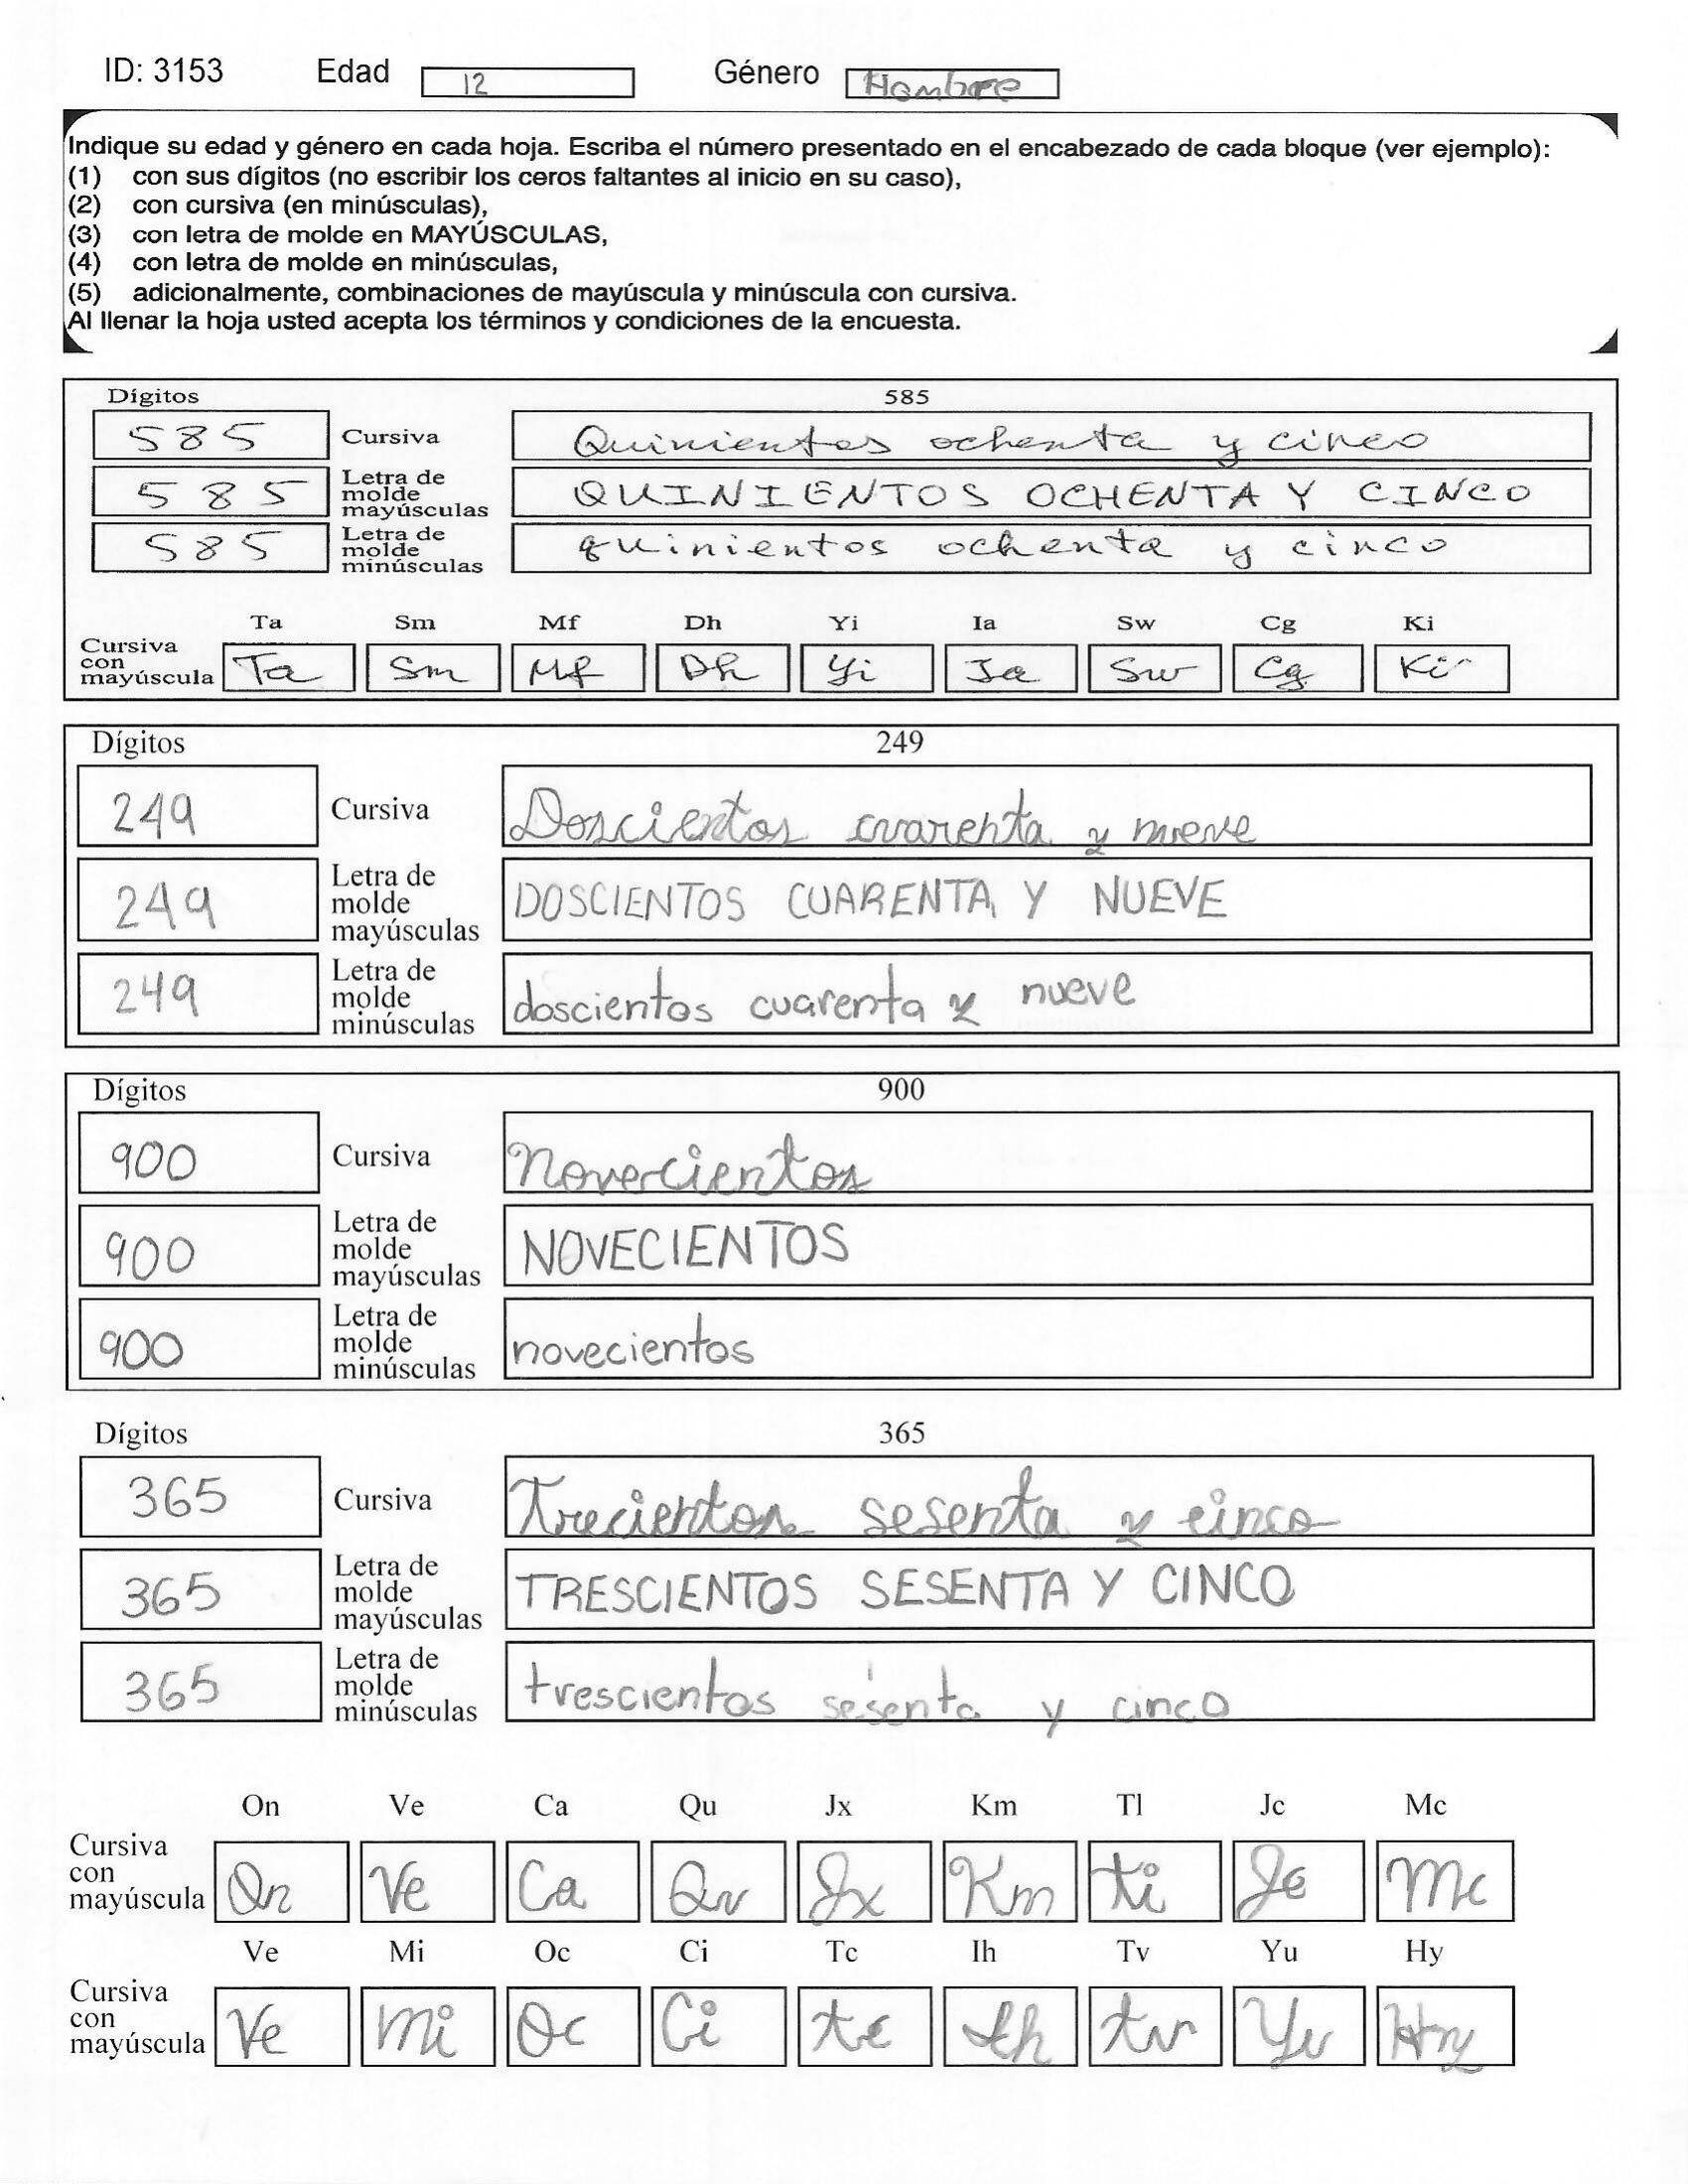 ID: 3153 Edad 12 Género Hombre
Indique su edad y género en cada hoja. Escriba el número presentado en el encabezado de cada bloque (ver ejemplo):
(1) con sus dígitos (no escribir los ceros faltantes al inicio en su caso),
(2) con cursiva (en minúsculas),
(3) con letra de molde en MAYÚSCULAS,
(4) con letra de molde en minúsculas,
(5) adicionalmente, combinaciones de mayúscula y minúscula con cursiva.
Al llenar la hoja usted acepta los términos y condiciones de la encuesta.
Dígitos 585
585 Cursiva Quinientos ochenta y cinco
585 Letra de molde mayúsculas QUINIENTOS OCHENTA Y CINCO
585 Letra de molde minúsculas quinientos ochenta y cinco
Ta Sm Mf Dh Yi Ia Sw Cg Ki
Cursiva con mayúscula Ta Sm Mf Dh Yi Ia Sw Cg Ki
Dígitos 249
249 Cursiva Doscientos cuarenta y nueve
249 Letra de molde mayúsculas DOSCIENTOS CUARENTA Y NUEVE
249 Letra de molde minúsculas doscientos cuarenta y nueve
Dígitos 900
900 Cursiva Novecientos
900 Letra de molde mayúsculas NOVECIENTOS
900 Letra de molde minúsculas novecientos
Dígitos 365
365 Cursiva Trecientos sesenta y cinco
365 Letra de molde mayúsculas TRESCIENTOS SESENTA Y CINCO
365 Letra de molde minúsculas trescientos sesenta y cinco
On Ve Ca Qu Jx Km Tl Jc Mc
Cursiva con mayúscula On Ve Ca Qu Jx Km ti Jc Mc
Ve Mi Oc Ci Tc Ih Tv Yu Hy
Cursiva con mayúscula Ve Mi Oc Ci tc Ih tv Yu Hy